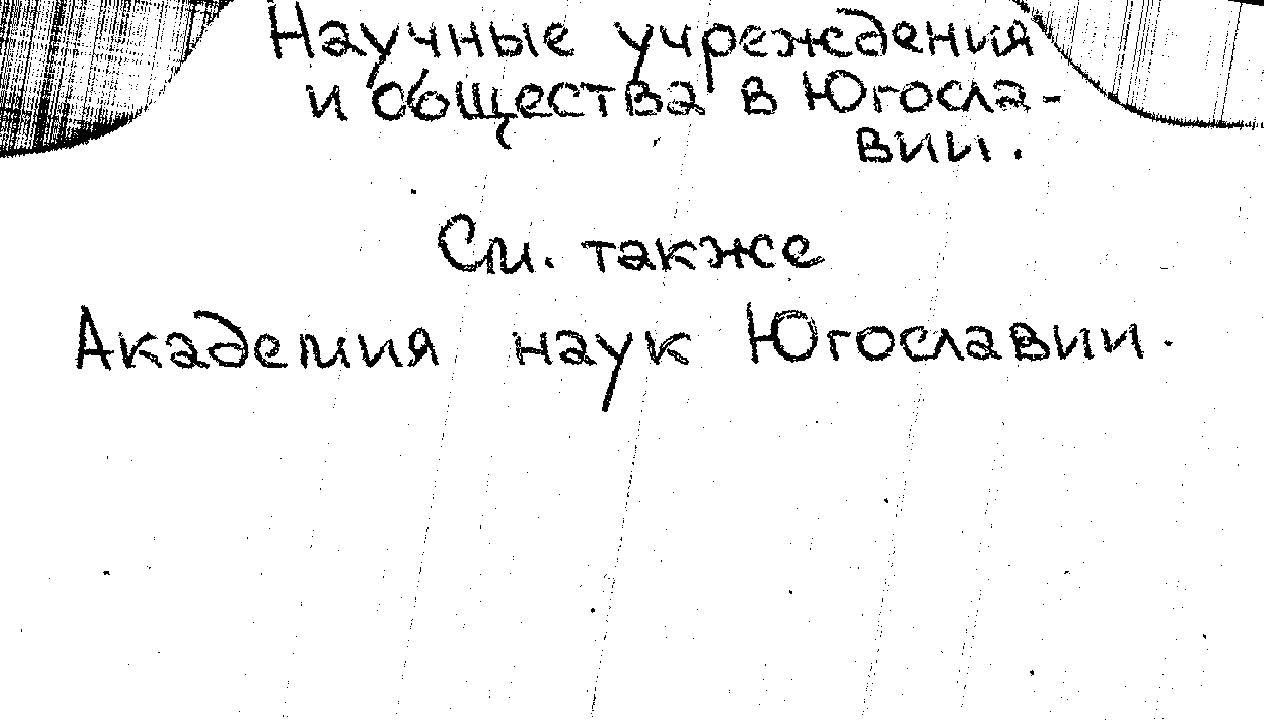 Научные учреждения
и общества в Югосла-
вии.
См. также
Академия наук Югославии.